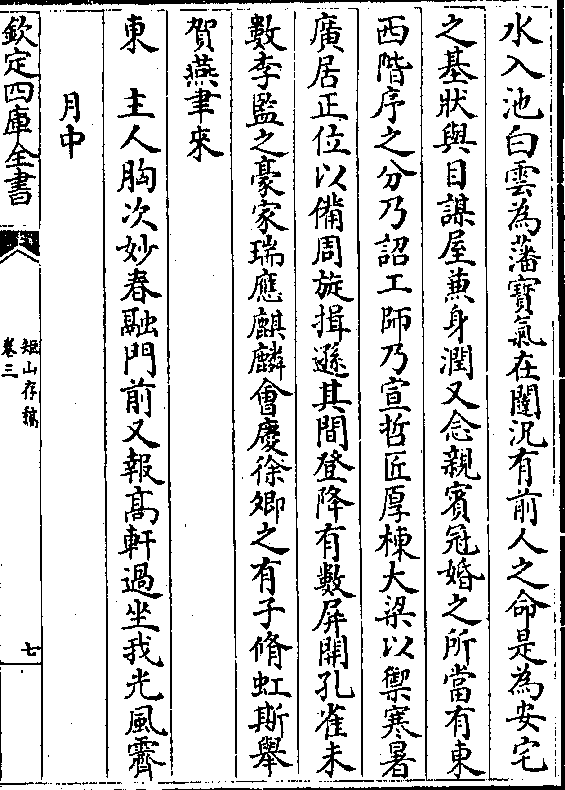 水入池白雲為藩寶氣在闥況有前人之命是為安宅
之基狀與目謀屋兼身潤又念親賓冠婚之所當有東
西階序之分乃詔工師乃宣哲匠厚棟大梁以禦寒暑
廣居正位以備周旋揖遜其間登降有數屏開孔雀未
數李監之豪家瑞應麒麟會慶徐卿之有子脩虹斯舉
賀燕聿來
東　主人胸次妙春融門前又報髙軒過坐我光風霽
月中
欽定四庫全書
矩山存稿
卷三
七